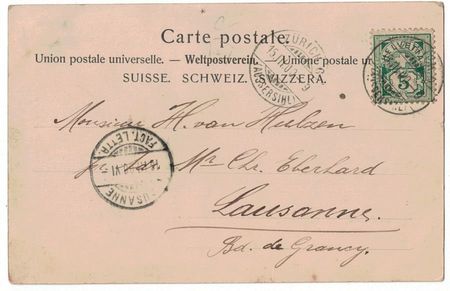 Carte postale.
Union postale universelle. — Weltpostverein. — Unione postale u
SUISSE. SCHWEIZ. SVIZZERA.
ZÜRICH
(AUSSERSIHL)
HELVETIA
5
Monsieur H. van Hulzen
Mr Chr. Eberhard
Lausanne.
Bd. de Grancy.
LAUSANNE
FACT. LETTR.